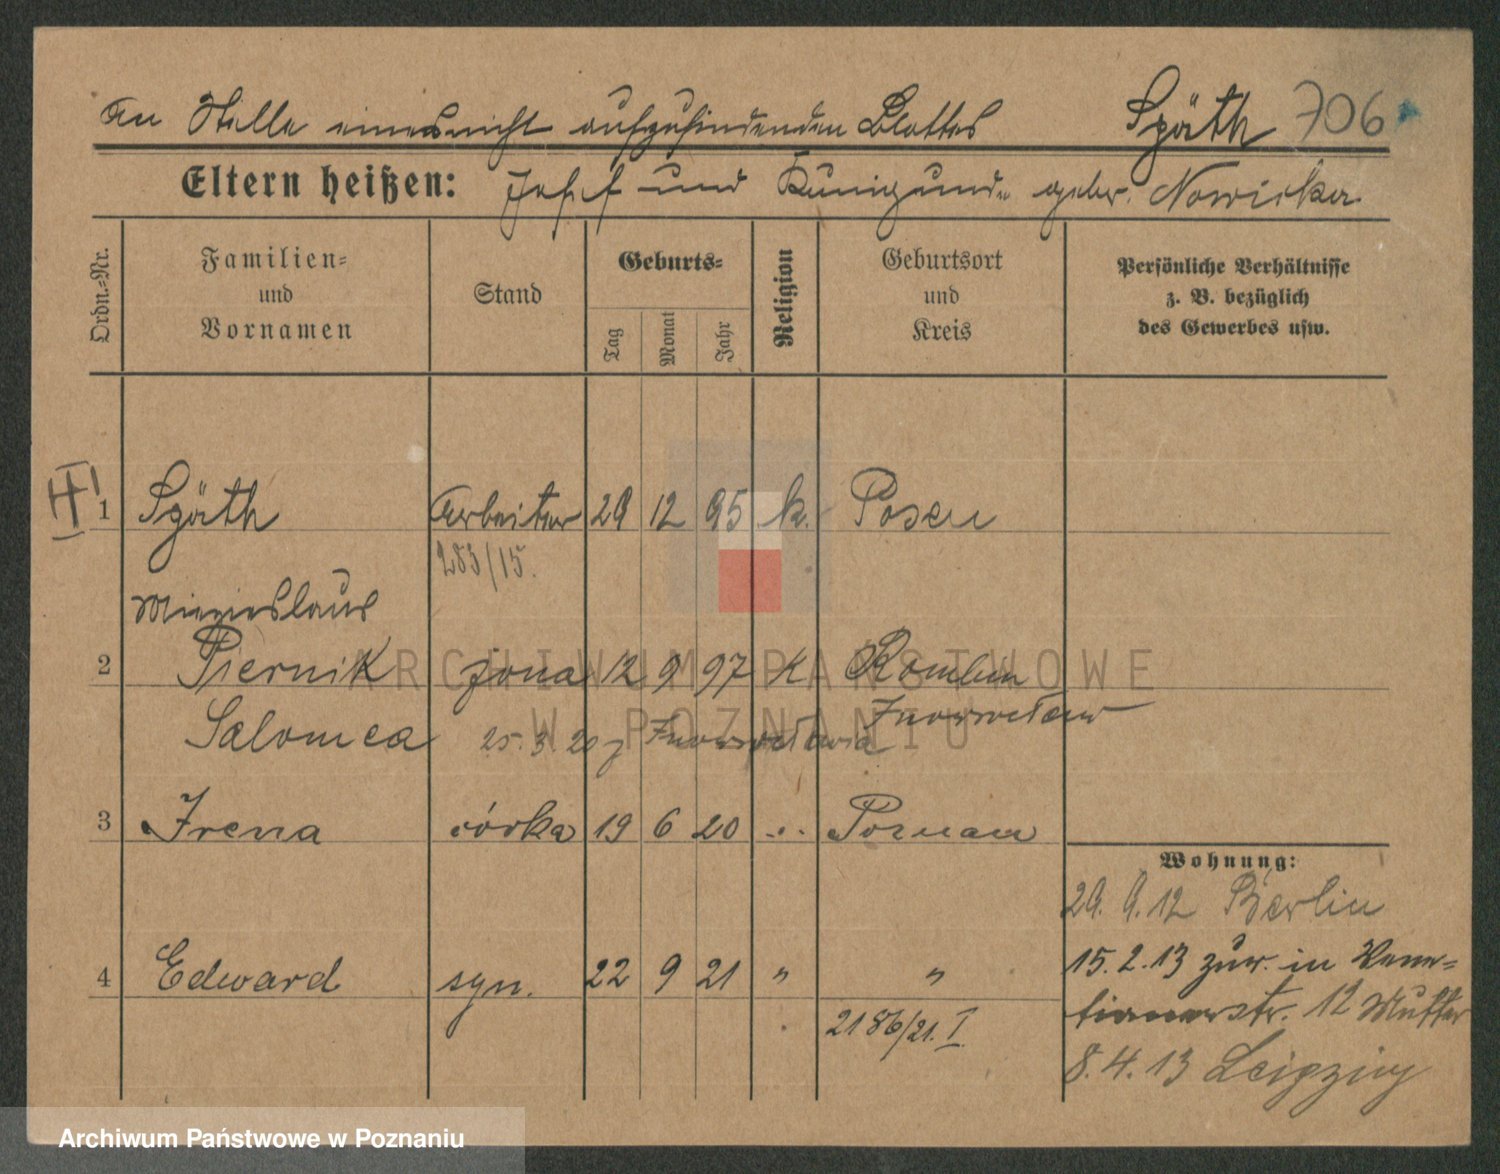 An Stelle eines nicht aufzufindenden Blattes Späth 706
Eltern heißen: Josef und Kunigunde gebr. Nowicka
Ordn.-Nr.
Familien- und Vornamen
Stand
Geburts-
Tag
Monat
Jahr
Religion
Geburtsort und Kreis
Persönliche Verhältnisse
z. B. bezüglich
des Gewerbes usw.
1 Späth Arbeiter 29 12 95 k. Posen
283/15.
Miecislaus
2 Piernik żona 12 9 97 K
Inowrocław
Salomea 25.3.20 Inowrocławia
3 Irena córka 19 6 20 Poznań
Wohnung:
29. 9. 12 Berlin
4 Edward syn. 22 9 21 " "
15. 2. 13 zur. in
str. 12 Mutter
2186/21. I
8. 4. 13 Leipzig
ARCHIWUM PAŃSTWOWE
W POZNANIU
Archiwum Państwowe w Poznaniu